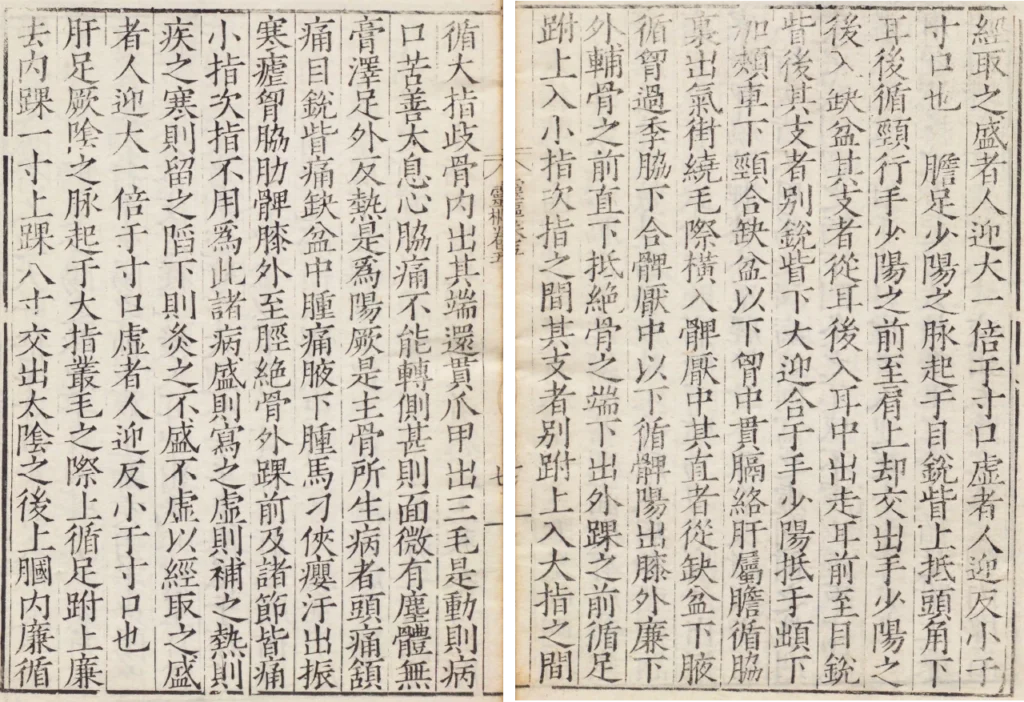 經取之盛者人迎大一倍于寸口虛者人迎反小于
寸口也　膽足少陽之脉起于目銳眥上抵頭角下
耳後循頸行手少陽之前至肩上却交出手少陽之
後入缺盆其支者從耳後入耳中出走耳前至目銳
眥後其支者別銳眥下大迎合于手少陽抵于䪼下
加頰車下頸合缺盆以下胷中貫膈絡肝屬膽循脇
裏出氣街繞毛際橫入髀厭中其直者從缺盆下腋
循胷過季脇下合髀厭中以下循髀陽出膝外廉下
外輔骨之前直下抵絶骨之端下出外踝之前循足
跗上入小指次指之間其支者別跗上入大指之間
靈樞卷五
七
循大指歧骨内出其端還貫爪甲出三毛是動則病
口苦善太息心脇痛不能轉側甚則面微有塵體無
膏澤足外反熱是爲陽厥是主骨所生病者頭痛頷
痛目銳眥痛缺盆中腫痛腋下腫馬刀俠癭汗出振
寒瘧胷脇肋髀膝外至脛絶骨外踝前及諸節皆痛
小指次指不用爲此諸病盛則寫之虛則補之熱則
疾之寒則留之陷下則灸之不盛不虛以經取之盛
者人迎大一倍于寸口虛者人迎反小于寸口也
肝足厥陰之脉起于大指叢毛之際上循足跗上廉
去内踝一寸上踝八寸交出太陰之後上膕内廉循